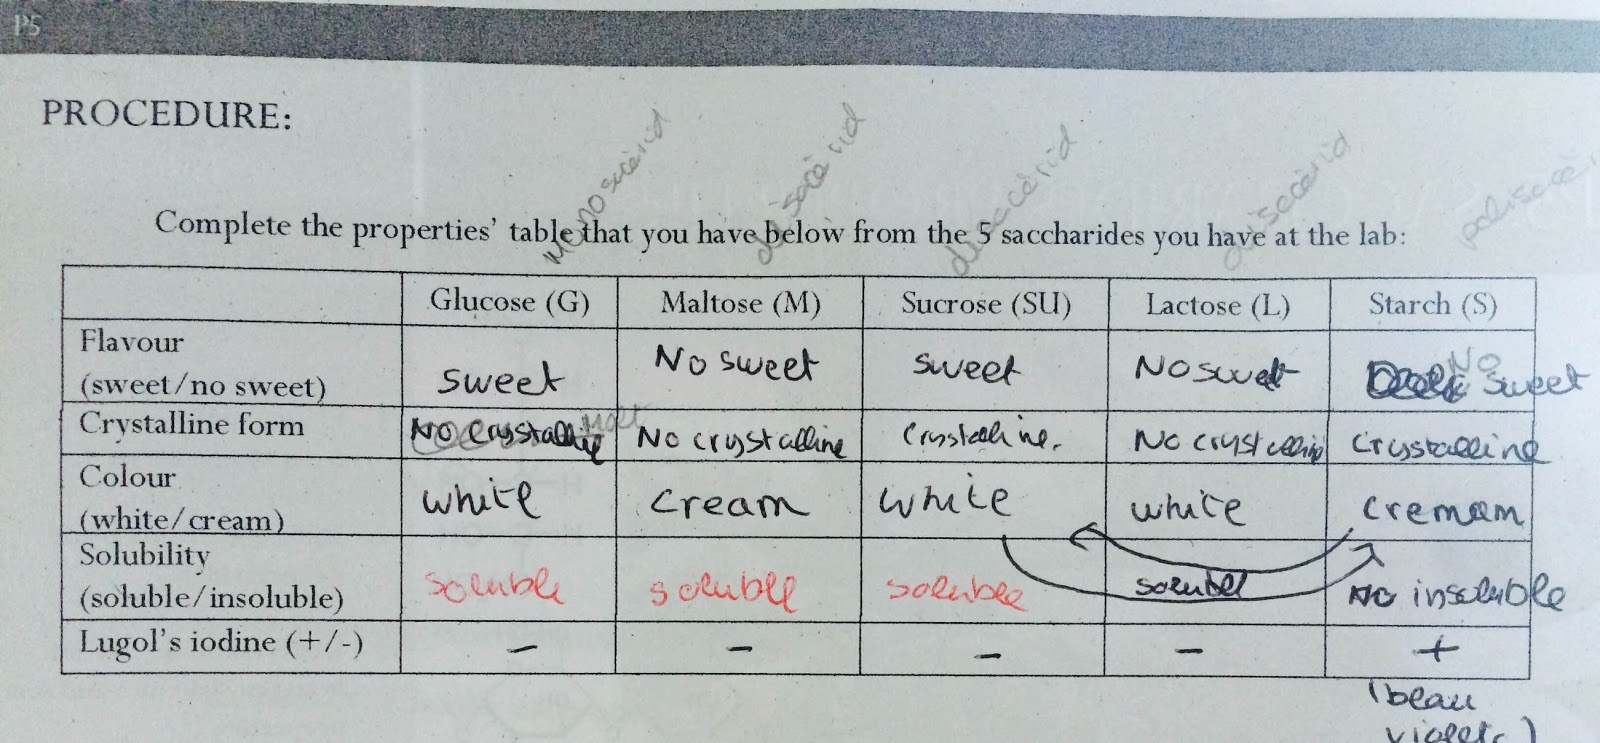 P5
PROCEDURE:
Monosacèrid disacèrid disacèrid disacèrid polisacè
Complete the properties' table that you have below from the 5 saccharides you have at the lab:
Glucose (G) Maltose (M) Sucrose (SU) Lactose (L) Starch (S)
Flavour
(sweet/no sweet) sweet No sweet sweet No sweet NO sweet
Crystalline form No crystalline No crystalline crystalline. No crystalline crystalline
Colour
(white/cream) white cream white white cremam
Solubility
(soluble/insoluble) soluble soluble soluble soluble NO insoluble
Lugol's iodine (+/-) - - - - +
(beau
violet)